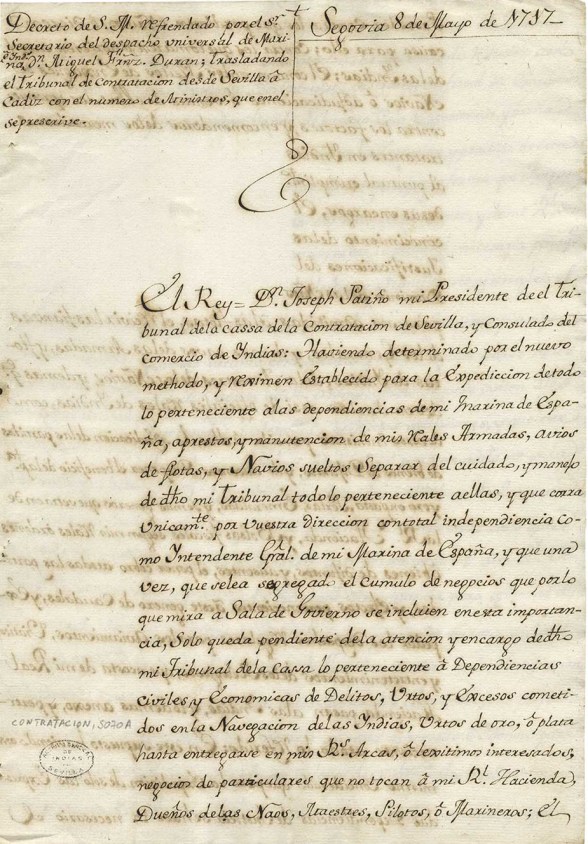 Decreto de S. M. refrendado por el Sr.
Secretario del despacho universal de Mari-
na, Dn. Miguel Frnz. Duran; trasladando
el Tribunal de Contratacion desde Sevilla à
Cadiz con el numero de Ministros, que en el
se prescrive.
Segovia 8 de Mayo de 1717
El Rey= Dn. Joseph Patiño mi Presidente de el Tri-
bunal dela cassa dela Contratacion de Sevilla, y Consulado del
comercio de Indias: Haviendo determinado por el nuevo
methodo, y Reximen Establecido para la Expediccion detodo
lo perteneciente alas dependiencias de mi Marina de Espa-
ña, aprestos, y manutencion de mis Rales Armadas, avios
de flotas, y Navios sueltos Separar del cuidado, y manejo
de dho mi Tribunal todo lo perteneciente aellas, y que corra
Vnicamte. por Vuestra Direccion contotal independiencia co-
mo Yntendente Gral. de mi Marina de España, y que una
vez, que selea segregado el cumulo de negocios que porlo
que mira a Sala de Govierno se incluien enesta importan-
cia, Solo queda pendiente dela atencion y encargo de dho
mi Tribunal dela Cassa lo perteneciente â Dependiencias
civiles y Economicas de Delitos, Vrtos, y Excesos cometi-
dos enla Navegacion delas Indias, Vrtos de oro, ô plata
hasta entregarse en mis Rs. Arcas, ô lexitimos interesados,
negocios de particulares que no tocan â mi Rl. Hacienda,
Dueños delas Naos, Maestres, Pilotos, ô Marineros; El
CONTRATACION, 5070A
ARCHIVO GENERAL
DE
INDIAS
SEVILLA